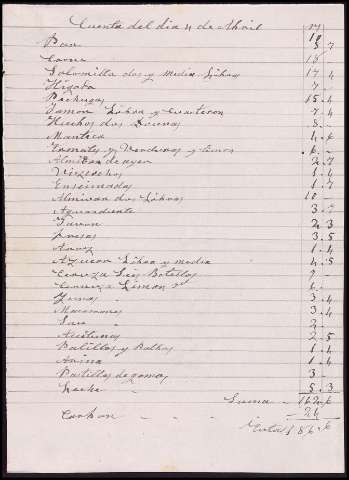 Cuenta del dia 4 de Abril
Pan 5 . 7
Carne 16 -
Solomillo dos y media Libras 17 . 4
Higado 7 -
Pechugas 15 . 4
Jamon Libra y Cuarteron 7 . 4
Huebos dos Docenas 8 -
Manteca 4 . 6
Tomates y Verduras y 6 -
Almibar de ayer 2 . 7
1 . 4
Enseimadas 1 . 7
Almivar dos Libras 10 -
Aguardiente 3 . 7
2 . 3
Fresas 3 . 5
Arroz 1 . 4
Azucar Libra y media 4 . 5
Cerveza Seis Botellas 9 -
Cerveza Limon 6 -
3 . 4
Macarrones 3 . 4
2 -
Aseitunas 2 . 5
Palillos y Bolhos 1 . 4
Arina 1 . 4
Pastillas de goma 3 -
Leche 5 . 3
Suma - 162 . 6
Carbon - - - 24
Total 186 . 6